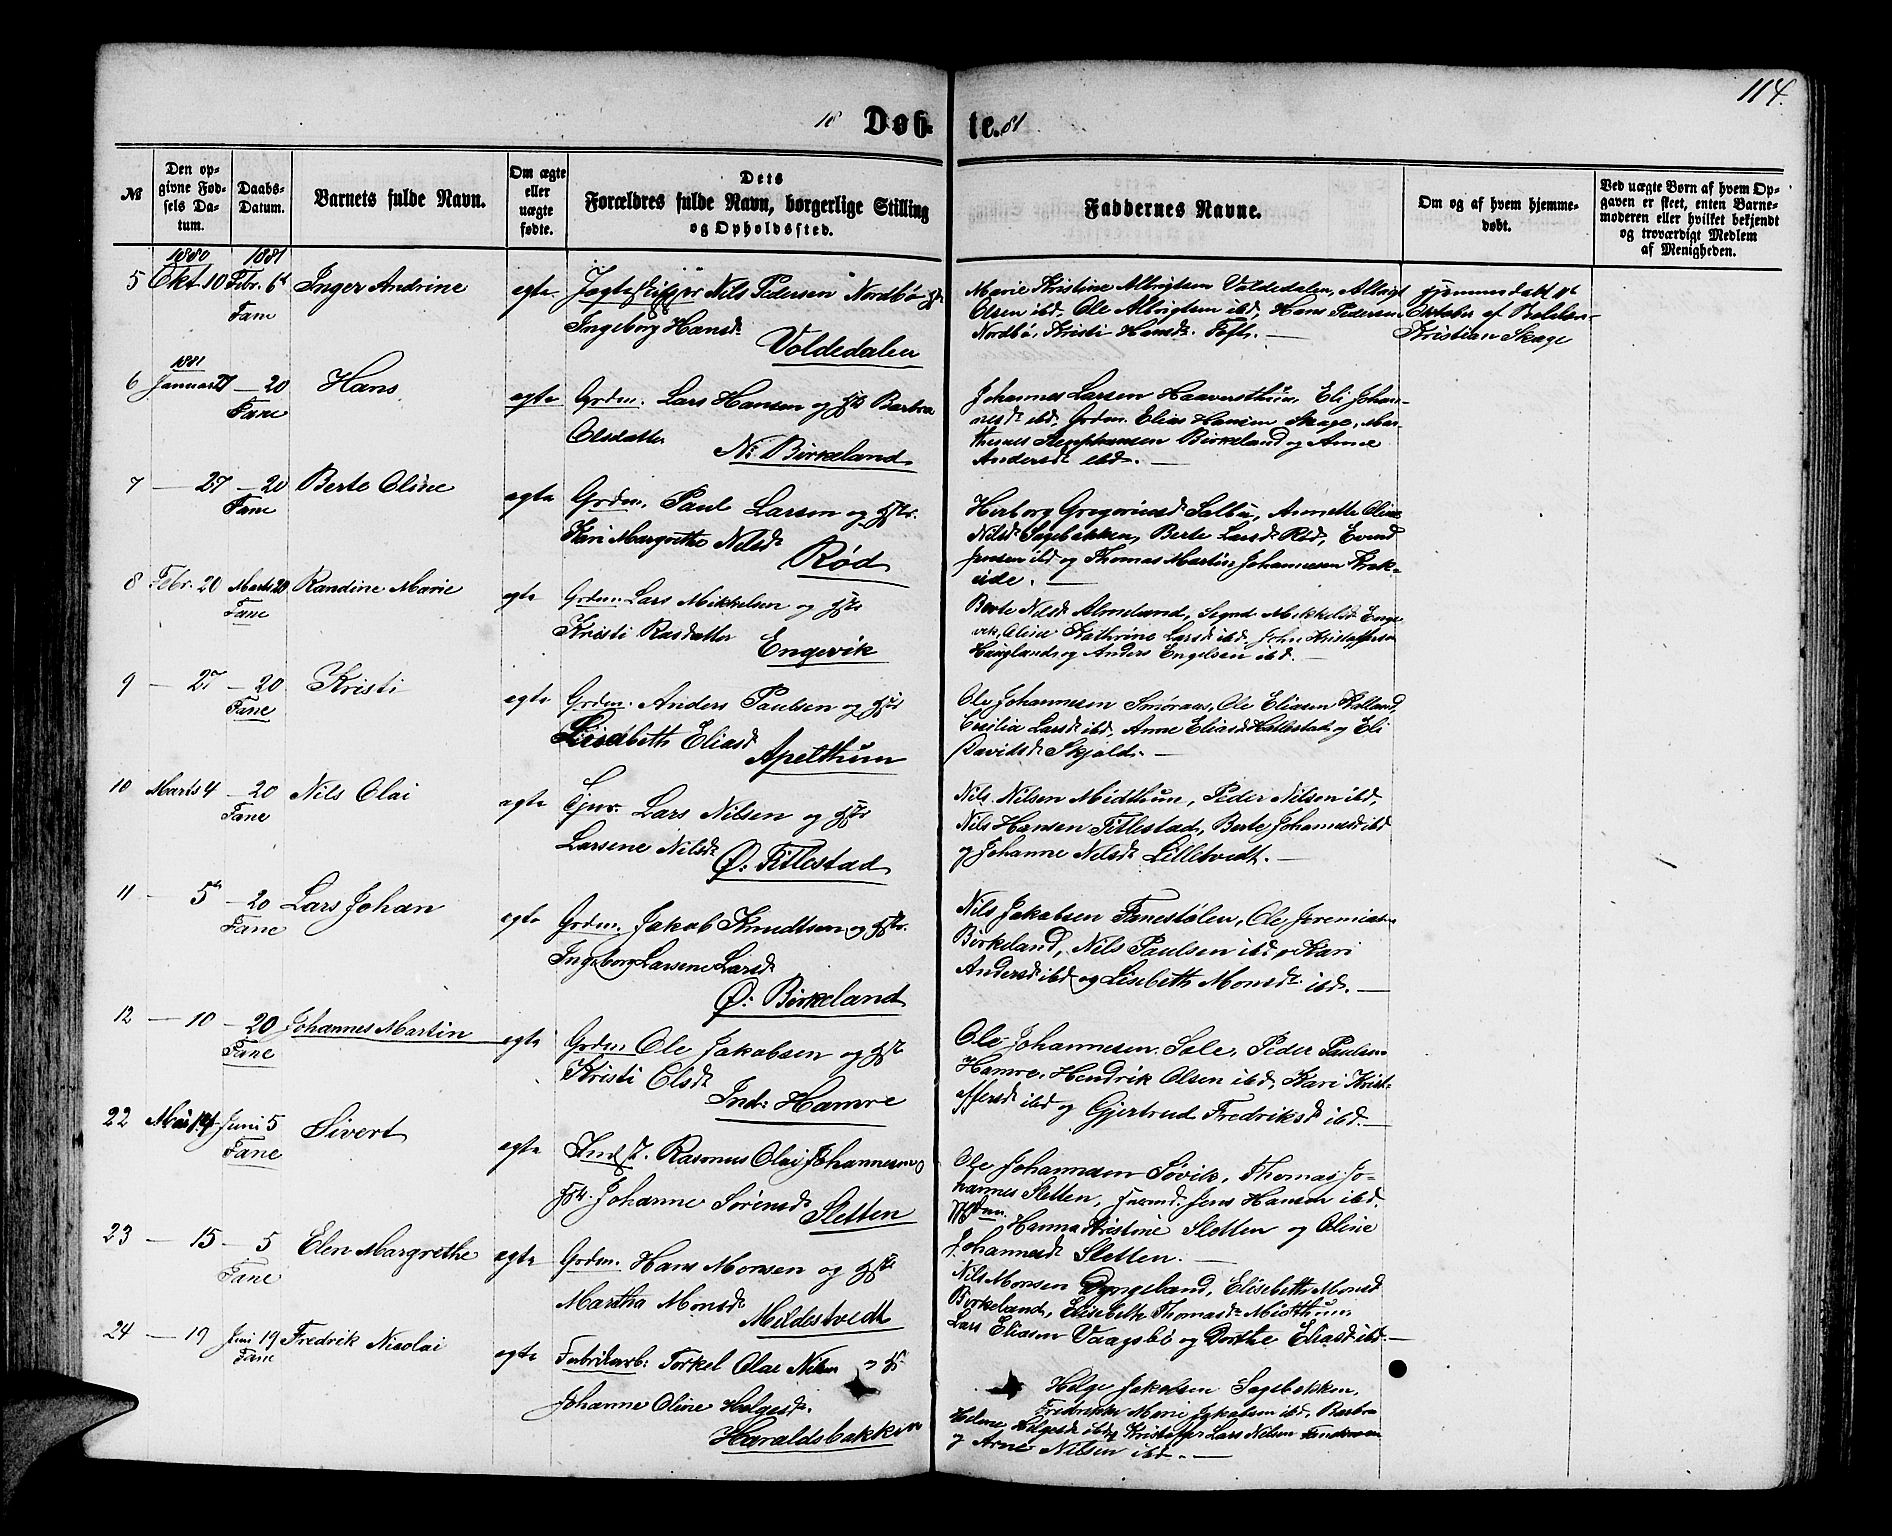 114.
18 Døb- te. 81
№
Den op-
givne Fød-
sels Da-
tum.
Daabs-
Datum.
Barnets fulde Navn.
Om ægte
eller
uægte
fødte.
Dets
Forældres fulde Navn, borgerlige Stilling
og Opholdssted.
Faddernes Navne.
Om og af hvem hjemme-
døbt.
Ved uægte Børn af hvem Op-
gaven er skeet, enten Barne-
moderen eller hvilket bekjendt
og troværdigt Medlem
af Menigheden.
1880 1881
5 Okt 10 Febr. 6te Inger Andrine egte Jagteskipper Nils Pedersen Nordbø
Fane
Ingeborg Hansd.
Voldedalen
Marie Kristine Albrigtsen Voldedalen, Albrigt
Olsen ibd, Ole Albrigtsen ibd, Hans Pedersen
Nordbø, Kristi Hansd. Toft. —
Hjemmedøbt
Oktober af
Kristian Skage
1881
6 Januar 27 — 20 Hans egte Grdm. Lars Hansen og Hst Barbra
Fane
Olsdatter
N: Birkeland
Johannes Larsen Haaversthun, Eli Johan-
nesd. ibd, Grdm. Elias Hansen Skage,
Birkeland og Anne
Andersd. ibd. —
7 — 27 — 20 Berte Oline egte Grdm. Paul Larsen og Hstr.
Fane
Kari Margrethe Nilsd.
Rød
Herborg Gregoriusd. Salbu, Annette Oline
Nilsd. Sagebakken, Berte Larsd. Rød,
Jensen ibd og Thomas Martin Johannesen Krok-
eide. —
8 Febr. 20 Marts 20 Randine Marie egte Grdm. Lars Mikkelsen og Hstr
Fane
Kristi Rasdatter
Engevik
Berte Nilsd. Almeland, Signd Mikkelsd. Enge-
vik, Oline Kathrine Larsd. ibd, John Kristoffersen
Hauglands og Anders Engelsen ibd. —
9 — 27 — 20 Kristi egte Grdm. Anders Paulsen og Hstr
Fane
Lisabeth Eliasd.
Apelthun
Ole Johannesen Smøraas, Ole Eliasen Kalland,
Cecilia Larsd. ibd, Anne Eliasd. Hatlestad og Eli
Davidsd. Skjold. —
10 Marts 4 — 20 Nils Olai egte Lars Nilsen og Hstr
Fane
Larsene Nilsd.
Ø: Titlestad
Nils Nilsen Midthun, Peder Nilsen ibd,
Nils Hansen Titlestad, Berte Johannesd. ibd
og Johanne Nilsd. Lilletvedt. —
11 — 5te — 20 Lars Johan egte Grdm. Jakob Knudtsen og Hstr.
Fane
Ingeborg Larsene Larsd.
Ø: Birkeland
Nils Jakobsen Fanestølen, Ole Jeremias-
Birkeland, Nils Paulsen ibd, Kari
Andersd. ibd og Lisebeth Monsd. ibd. —
12 — 10 — 20 Johannes Martin egte Grdm Ole Jakobsen og Hstr
Fane
Kristi Olsd.
Ind: Hamre
Ole Johannesen Sale, Peder Paulsen
Hamre, Hendrik Olsen ibd, Kari Krist-
offersd. ibd og Gjertrud Fredriksd. ibd. —
22 Mai 19 Juni 5 Sivert egte Indst. Rasmus Olai Johannesen og
Fane
Hst. Johanne Sørensd.
Sletten
Ole Johannesen Søvik, Thomas Jo-
hannes Sletten, Jens Hansen ibd.
Hanna Kristine Sletten og Oline
Johannesd. Sletten. —
23 — 15 — 5 Elen Margrethe egte Grdm. Hans Monsen og Hstr
Fane
Martha Monsd.
Mildestvedt
Nils Monsen Dyngeland, Elisebeth Monsd
Birkeland, Elisebeth Thomasd. Midtthun,
Lars Eliasen Vaagsbø og Dorthe Eliasd. ibd. —
24 — 19 Juni 19 Fredrik Nicolai egte Fabrikarb: Torkel Olai Nilsen
Fane
Johanne Oline Helgesd.
Haraldsbakken
Helge Jakobsen Sagebakken,
Fredrikke Marie Jakobsen ibd, Barbra
Helene Helgesd. ibd, Kristoffer Lars Nilsen
og Arne Nilsen ibd. —